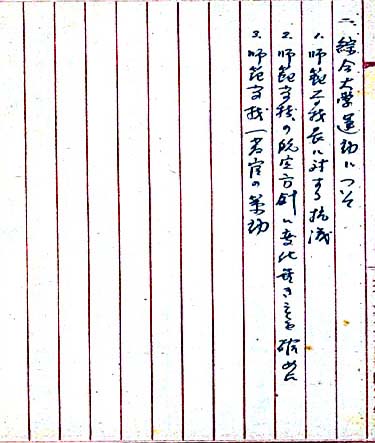 二、綜合大学運動について
1. 师範学校長に対する抗議
2. 师範学校の既定方針に変化無きことを確めん
3. 师範学校一官の策動